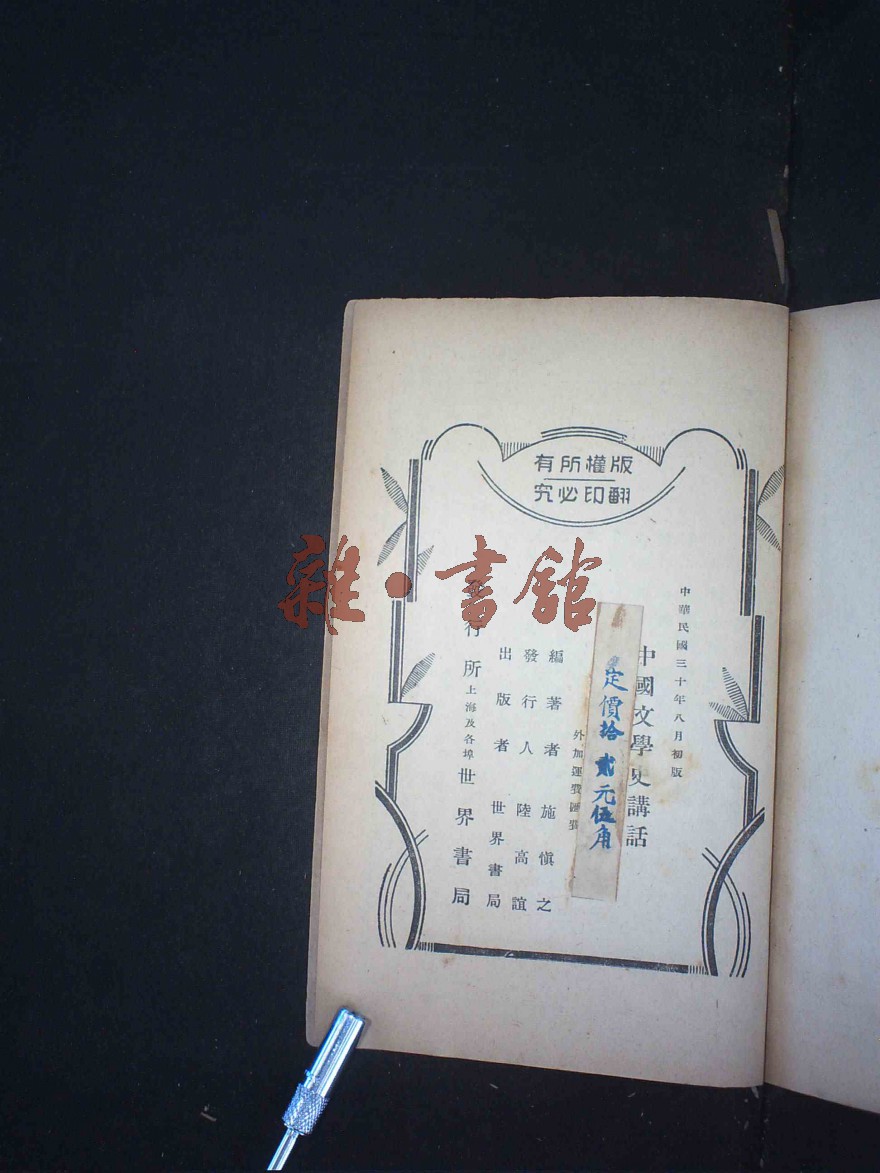 版權所有
翻印必究
中華民國三十年八月初版
中國文學史講話
定價拾貳元伍角
外加運費匯費
編著者 施慎之
發行人 陸高誼
出版者 世界書局
行所 上海及各埠 世界書局
雜·書館